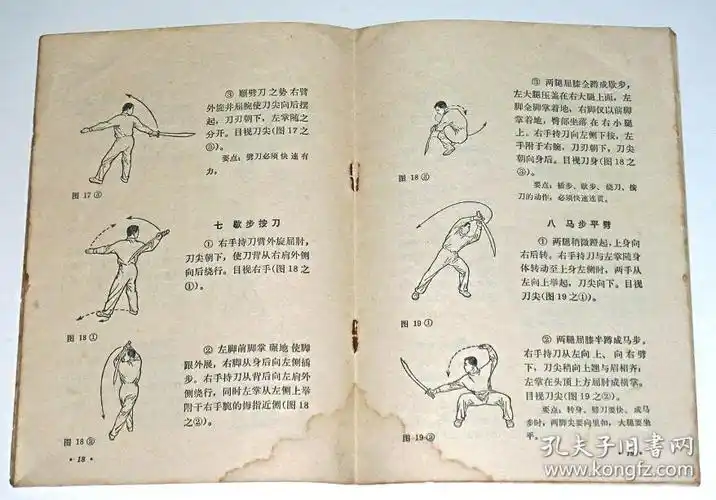 ③ 顺劈刀之势右臂
外旋并屈腕使刀尖向后摆
起，刀刃朝下，左掌随之
分开。目视刀尖（图17之
③）。
要点：劈刀必须快速有
力。
图 17③
七 歇步按刀
① 右手持刀臂外旋屈肘，
刀尖朝下，使刀背从右肩外侧
向后绕行。目视右手（图18之
①）。
图 18①
② 左脚前脚掌碾地使脚
跟外展，右脚从身后向左侧插
步。右手持刀从背后向左肩外
侧绕行，同时左掌从左侧上举
附于右手腕的拇指近侧（图18
之②）。
图 18②
· 18 ·
③ 两腿屈膝全蹲成歇步，
左大腿压盖在右大腿上面，左
脚全脚掌着地、右脚仅以前脚
掌着地，臀部坐落在右小腿
上。右手持刀向左侧下按，左
手附于右腕，刀刃朝下，刀尖
朝向身后。目视刀身（图18之
③）。
要点：插步、歇步、绕刀、按
刀的动作，必须快速连贯。
图 18③
八 马步平劈
① 两腿稍微蹬起，上身向
右后转。右手持刀与左掌随身
体转动至上身左侧时，两手从
左向上举起，刀尖向下。目视
刀尖（图19之①）。
图 19①
② 两腿屈膝半蹲成马步，
右手持刀从左向上、向右劈
下，刀尖稍向上翘与眉相齐，
左掌在头顶上方屈肘成横掌。
目视刀尖（图19之②）。
要点：转身、劈刀要快、成马
步时，两脚尖要向里扣，大腿要坐
平。
图 19②
孔夫子旧书网
www.kongfz.com